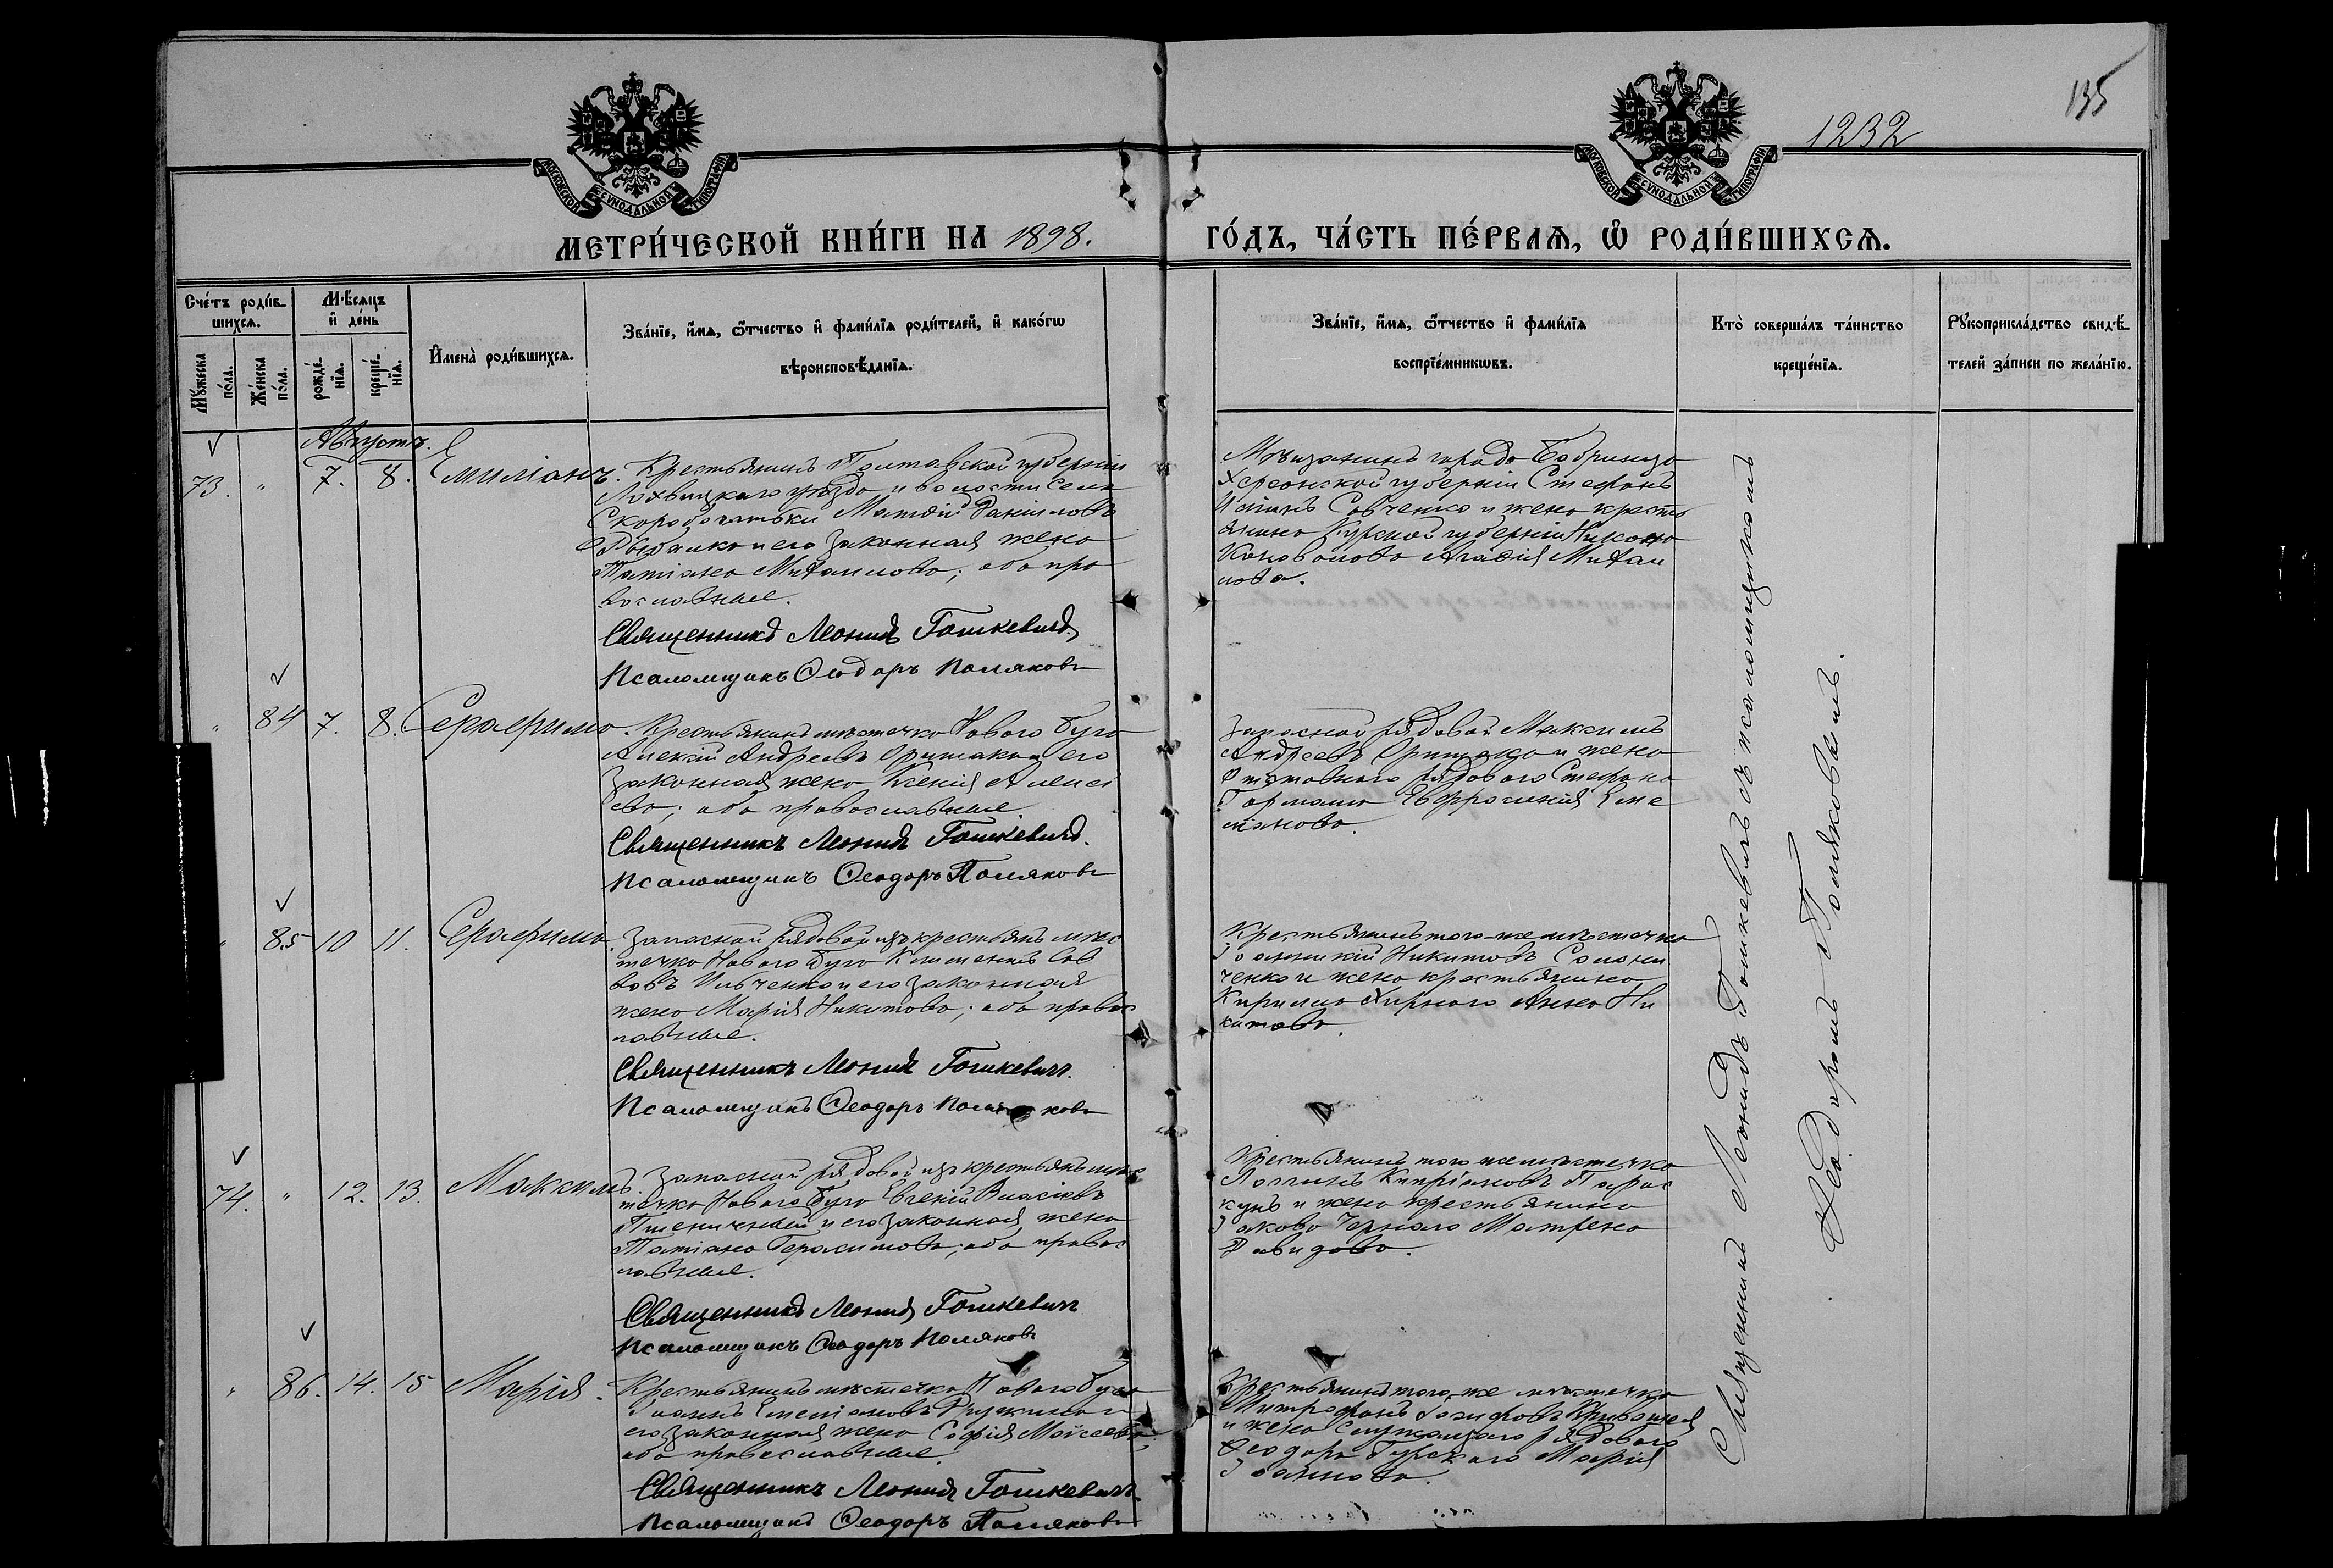 135
1232
МОСКОВСКОЙ СѴНОДАЛЬНОЙ ТИПОГРАФІИ
МОСКОВСКОЙ СѴНОДАЛЬНОЙ ТИПОГРАФІИ
МЕТРИ́ЧЕСКОЙ КНИ́ГИ НА 1898.
ГО́ДЪ, ЧА́СТЬ ПЕ́РВАѦ, Ѡ҆ РОДИ́ВШИХСѦ.
Сче́тъ роди́в-
шихсѧ.
Мꙋ́жеска по́ла.
Же́нска по́ла.
Мѣ́сѧцъ
и҆ де́нь
рожде́-
нїѧ.
креще́-
нїѧ.
И҆мена̀ роди́вшихсѧ.
Зва́нїе, и҆́мѧ, ѻ҆́тчество и҆ фами́лїѧ роди́телей, и҆ како́гѡ
вѣроисповѣ́данїѧ.
Зва́нїе, и҆́мѧ, ѻ҆́тчество и҆ фами́лїѧ
воспрїе́мникѡвъ.
Кто̀ соверша́лъ та́инство
креще́нїѧ.
Рꙋкоприкла́дство свидѣ́-
телей за́писи по жела́нїю.
Августъ.
73. " 7. 8. Емиліанъ.
Крестьянинъ Полтавской губерніи
Лохвицкаго уѣзда и волости села
Скоробогатьки Матѳій Даніиловъ
Рыбалко и его законная жена
Татіана Михаилова; оба пра
вославные.
Священникъ Леонидъ Гошкевичъ
Псаломщикъ Ѳеодоръ Поляковъ
Мѣщанинъ города Бобринца
Херсонской губерніи Стефанъ
Савченко и жена кресть
янина Курской губерніи Никона
Коновалова Агаѳія Михаи
лова.
" 84 7. 8. Серафима.
Крестьянинъ мѣстечка Новаго Буга
Алексій Андреевъ и его
законная жена Ксенія Алексі
ева; оба православные.
Священникъ Леонидъ Гошкевичъ.
Псаломщикъ Ѳеодоръ Поляковъ
Запасной рядовой Максимъ
Андреевъ и жена
отставнаго рядоваго Стефана
Евфросинія Еме
ліанова.
" 85 10 11. Серафима.
Запасной рядовой изъ крестьянъ мѣс
течка Новаго Буга Климентъ Сав
вовъ Ильченко и его законная
жена Марія Никитова; оба правос
лавные.
Священникъ Леонидъ Гошкевичъ.
Псаломщикъ Ѳеодоръ Поляковъ
Крестьянинъ того-же мѣстечка
Іоанникій Никитовъ Солони
ченко и жена крестьянина
Кирилла Хирнаго Анна Ни
китова.
74. " 12. 13. Максимъ.
Запасный рядовой изъ крестьянъ мѣс
течка Новаго Буга Евгеній Власіевъ
Пшеничный и его законная жена
Татіана Герасимова; оба правос
лавные.
Священникъ Леонидъ Гошкевичъ
Псаломщикъ Ѳеодоръ Поляковъ
Крестьянинъ того же мѣстечка
Логинъ Кипріановъ Парас
кунъ и жена крестьянина
Іакова Чернаго Матрена
Давидова.
" 86. 14. 15 Марія.
Крестьянинъ мѣстечка Новаго Буга
Іоаннъ Емеліановъ и
его законная жена Софія Моисеева;
оба православные.
Священникъ Леонидъ Гошкевичъ.
Псаломщикъ Ѳеодоръ Поляковъ
Крестьянинъ того-же мѣстечка
Митрофанъ Іосифовъ Кривошея
и жена служащаго рядоваго
Ѳеодора Гурскаго Марія
Іоаннова.
Священникъ Леонидъ Гошкевичъ съ псаломщикомъ
Ѳеодоромъ Поляковымъ.